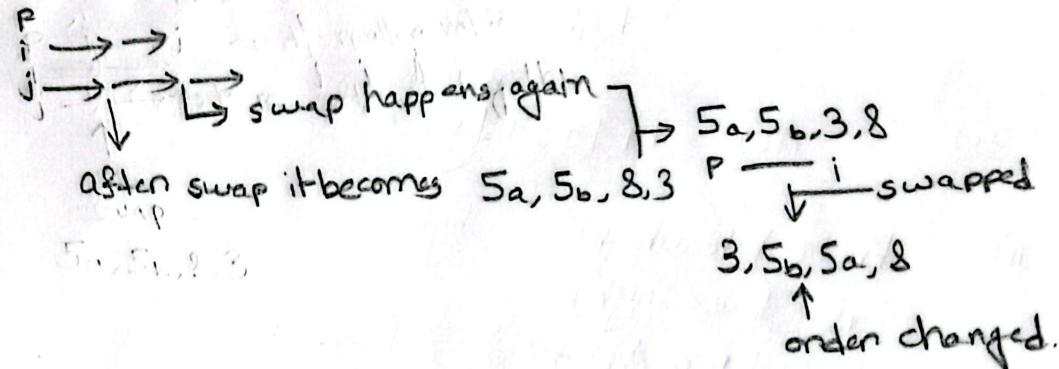 P
i → → i
j → → →
↳ swap happens again → 5a, 5b, 3, 8
after swap it becomes 5a, 5b, 8, 3
P — i
swapped
3, 5b, 5a, 8
↑
order changed.